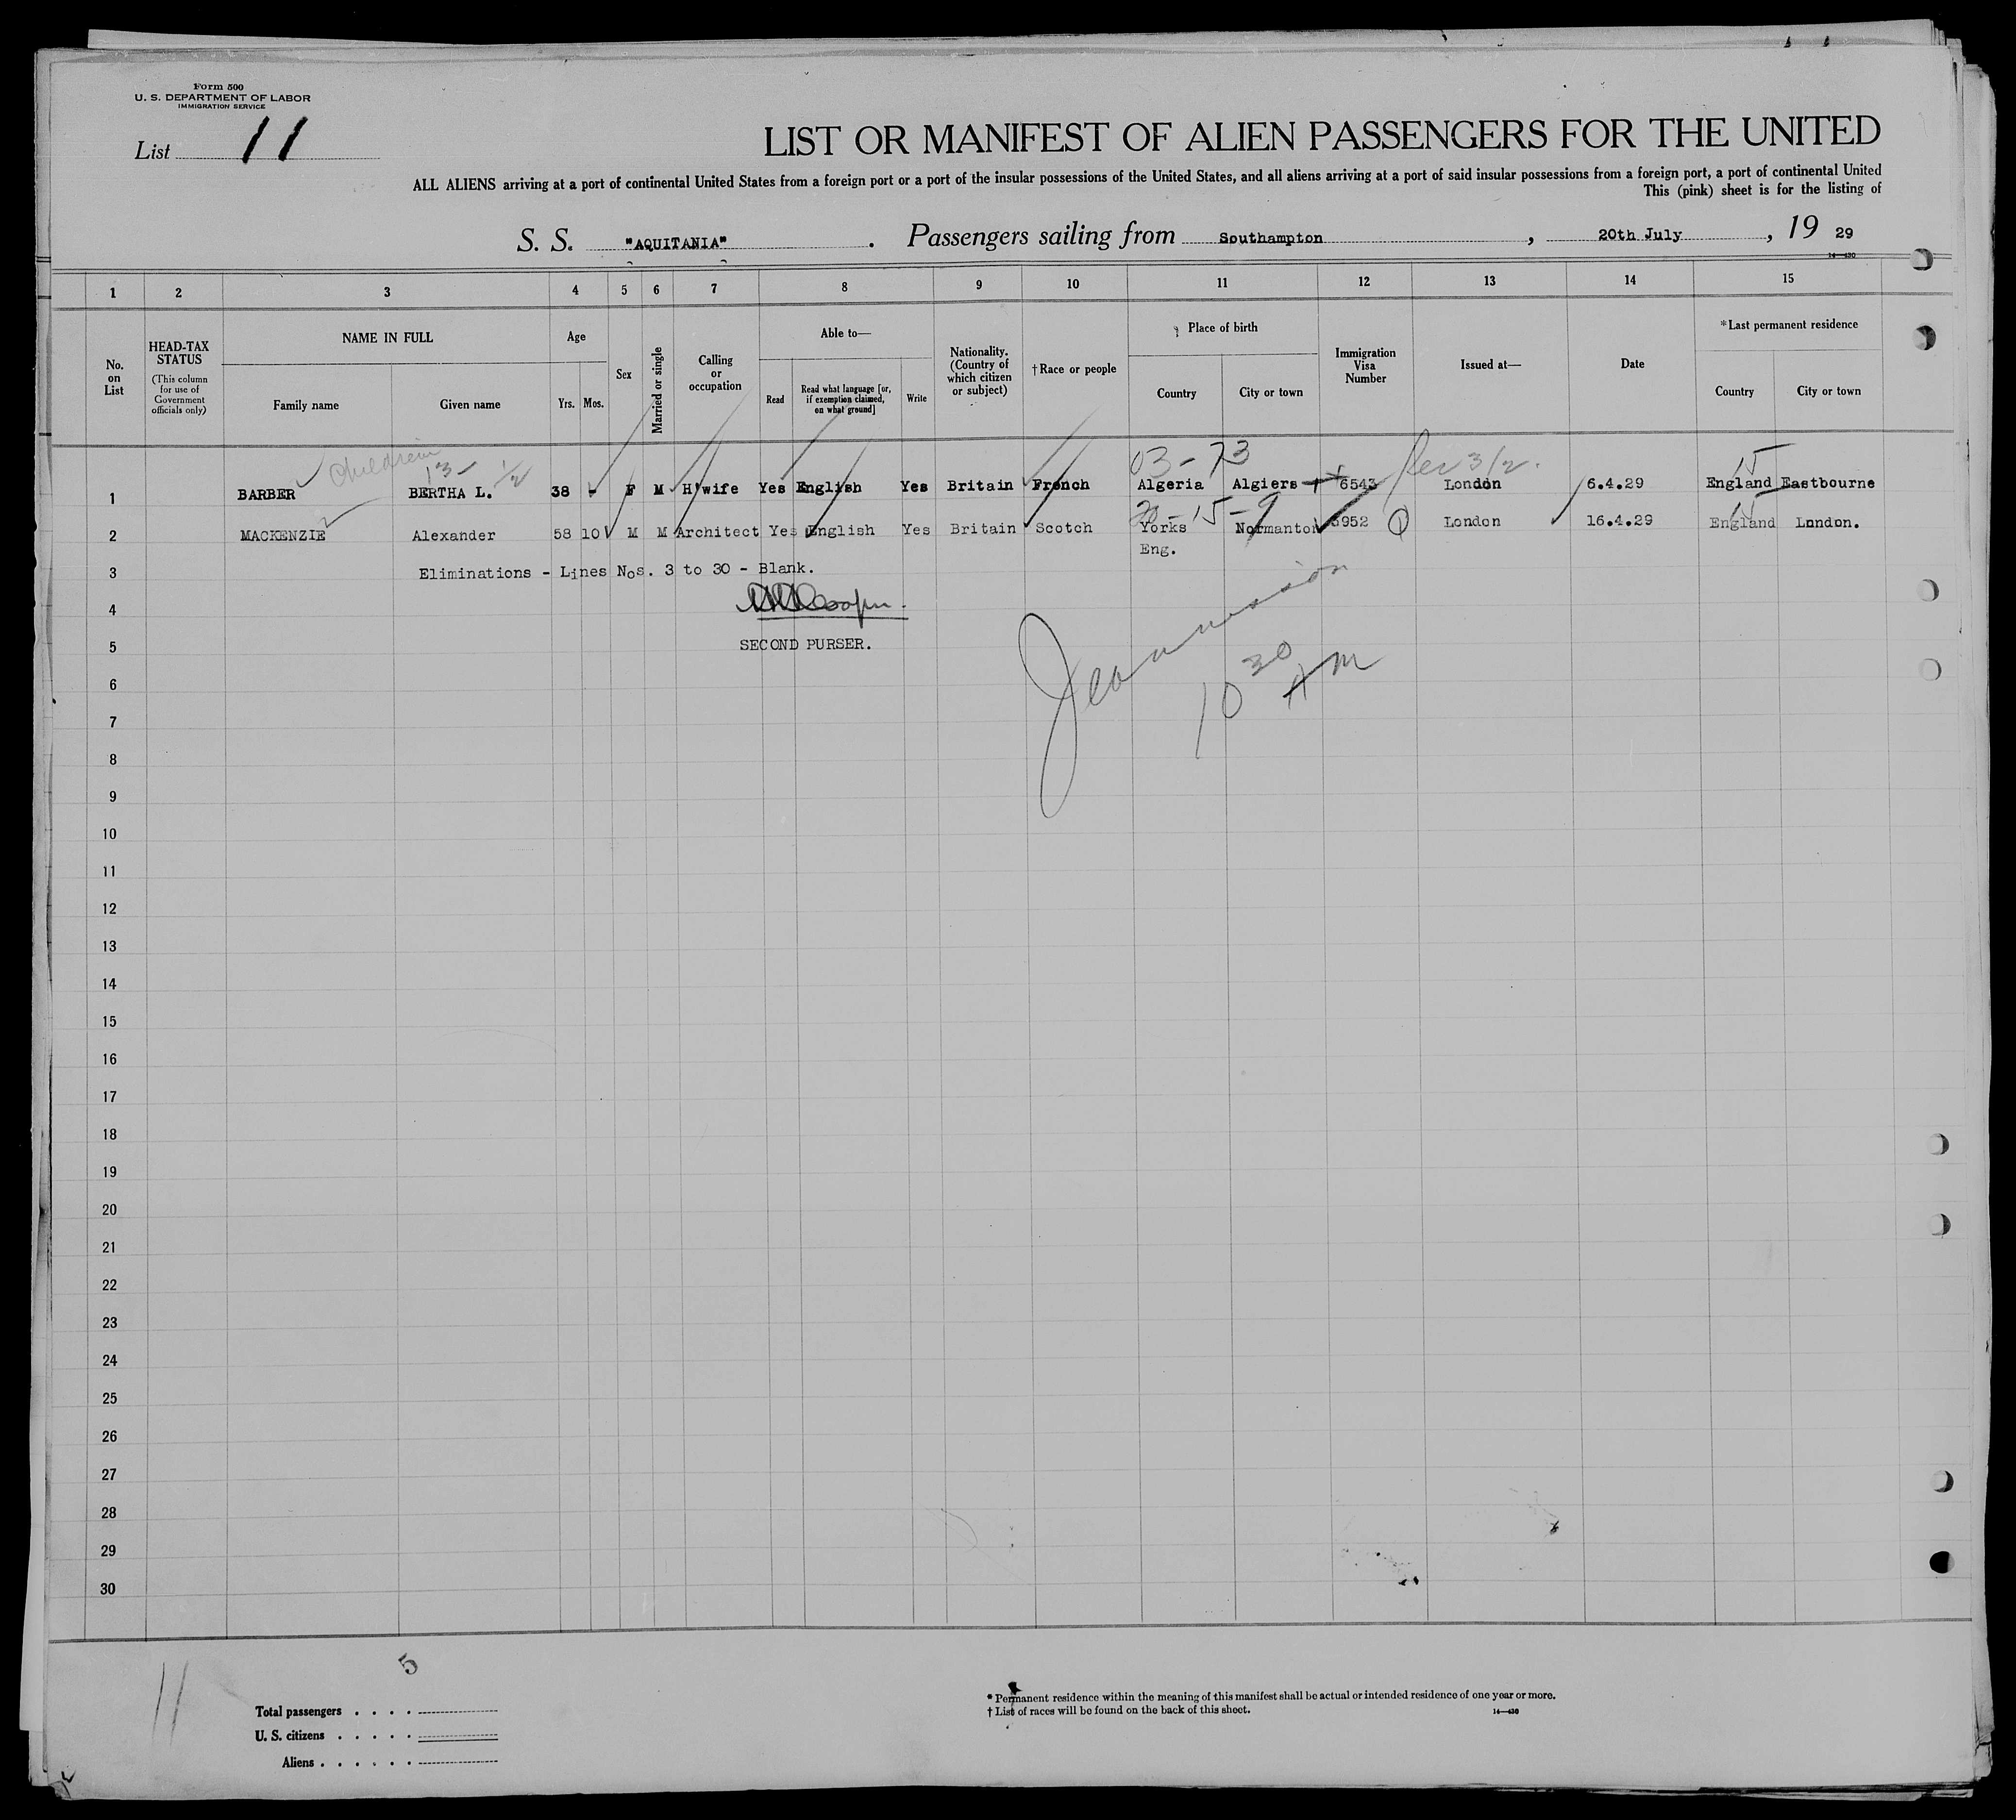 Form 500
U. S. DEPARTMENT OF LABOR
IMMIGRATION SERVICE
List 11
LIST OR MANIFEST OF ALIEN PASSENGERS FOR THE UNITED
ALL ALIENS arriving at a port of continental United States from a foreign port or a port of the insular possessions of the United States, and all aliens arriving at a port of said insular possessions from a foreign port, a port of continental United
This (pink) sheet is for the listing of
S. S. "AQUITANIA" . Passengers sailing from Southampton , 20th July , 19 29
14—430
1 2 3 4 5 6 7 8 9 10 11 12 13 14 15
No. on List
HEAD-TAX STATUS (This column for use of Government officials only)
NAME IN FULL
Family name Given name
Age
Yrs. Mos.
Sex
Married or single
Calling or occupation
Able to—
Read
Read what language [or, if exemption claimed, on what ground]
Write
Nationality. (Country of which citizen or subject)
†Race or people
Place of birth
Country City or town
Immigration Visa Number
Issued at—
Date
*Last permanent residence
Country City or town
Children 13 - 1/2 03-73 15
1 BARBER BERTHA L. 38 - F M H'wife Yes English Yes Britain French Algeria Algiers 6543 London 6.4.29 England Eastbourne
15-9 15
2 MACKENZIE Alexander 58 10 M M Architect Yes English Yes Britain Scotch Yorks Normanton 5952 London 16.4.29 England London.
Eng.
3 Eliminations - Lines Nos. 3 to 30 - Blank.
4
5 SECOND PURSER.
10 30 AM
6
7
8
9
10
11
12
13
14
15
16
17
18
19
20
21
22
23
24
25
26
27
28
29
30
11
5
Total passengers . . . .
U. S. citizens . . . . .
Aliens . . . . . .
* Permanent residence within the meaning of this manifest shall be actual or intended residence of one year or more.
† List of races will be found on the back of this sheet.
14—430